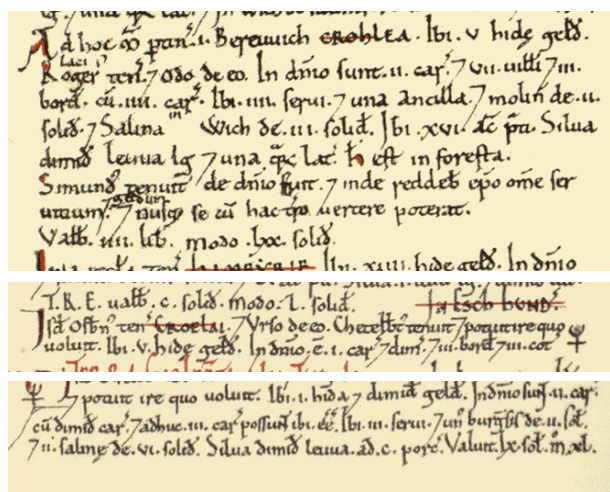 Ad hoc m̄ ptin̄ .i. Bereuuich CROHLEA. Ibi .v. hide geld̄.
laci
Roger ten̄. 7 Odo de eo. In dn̄io sunt .ii. car̄. 7 vii. uilli 7 iii.
bord̄. cū .iiii. car̄. Ibi .iiii. serui. 7 una ancilla. 7 molin̄ de .ii.
solid̄. 7 Salina in Wich de .iii. solid̄. Ibi .xvi. āc p̄ti. Silua
dimid̄ leuua lḡ 7 una qrc lat̄. h̄ est in foresta.
Simund tenuit de dn̄io fuit. 7 inde reddeb̄ ep̄o om̄e ser
uitium. 7 geldum 7 nusq̄ se cū hac tr̄a uertere poterat.
Valb̄ .iiii. lib̄. modo .lxx. solid̄.
hide geld̄. In dn̄io
T.R.E. ualb̄ .c. solid̄. modo .l. solid̄. In ESCH HUND̄.
Isd̄ Osbn̄ ten̄ CROELAI. 7 Vrso de eo. Chetelbt̄ tenuit 7 potuit ire quo
uoluit. Ibi .v. hide geld̄. In dn̄io .ē. i. car̄ 7 dim̄. 7 iii. bord̄ 7 iii. cot̄
7 potuit ire quo uoluit. Ibi .i. hida 7 dimid̄ geld̄. In dn̄io sunt̄ .ii. car̄.
cū dimid̄ car̄. 7 adhuc .iii. car̄ possunt̄ ibi .ēē. Ibi .iii. serui. 7 un̄ burgsīs de .ii. sol̄.
7 ii. saline de .vi. solid̄. Silua dimid̄ leuua. ad .c. porc̄. Valuit .lx. sol̄. m̊ .xl.